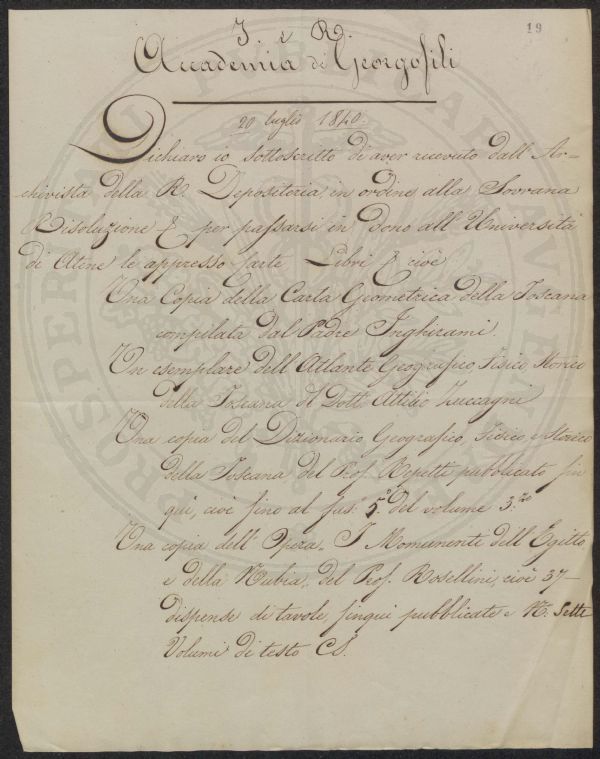 19
I. e R.
Accademia di Georgofili
20 luglio 1840.
Dichiaro io sottoscritto di aver ricevuto dall'Ar-
chivista della R. Depositeria in ordine alla Sovrana
Risoluzione & per passarsi in dono all'Università
di Atene le appresso Carte Libri & cioè
Una Copia della Carta Geometrica della Toscana
compilata dal Padre Inghirami
Un esemplare dell'Atlante Geografico, Fisico, Storico
della Toscana del Dott. Attilio Zuccagni
Una copia del Dizionario Geografico, Fisico, e Storico
della Toscana del Prof. Repetti pubblicato fin
qui, cioè fino al fas. 5.° del volume 3.zo
Una copia dell'Opera I Monumenti dell'Egitto
e della Nubia del Prof. Rosellini, cioè 37-
dispense di tavole finqui pubblicate e N. Sette
Volumi di testo CS.
PROSPERITATI PUBLICAE AUGENDAE